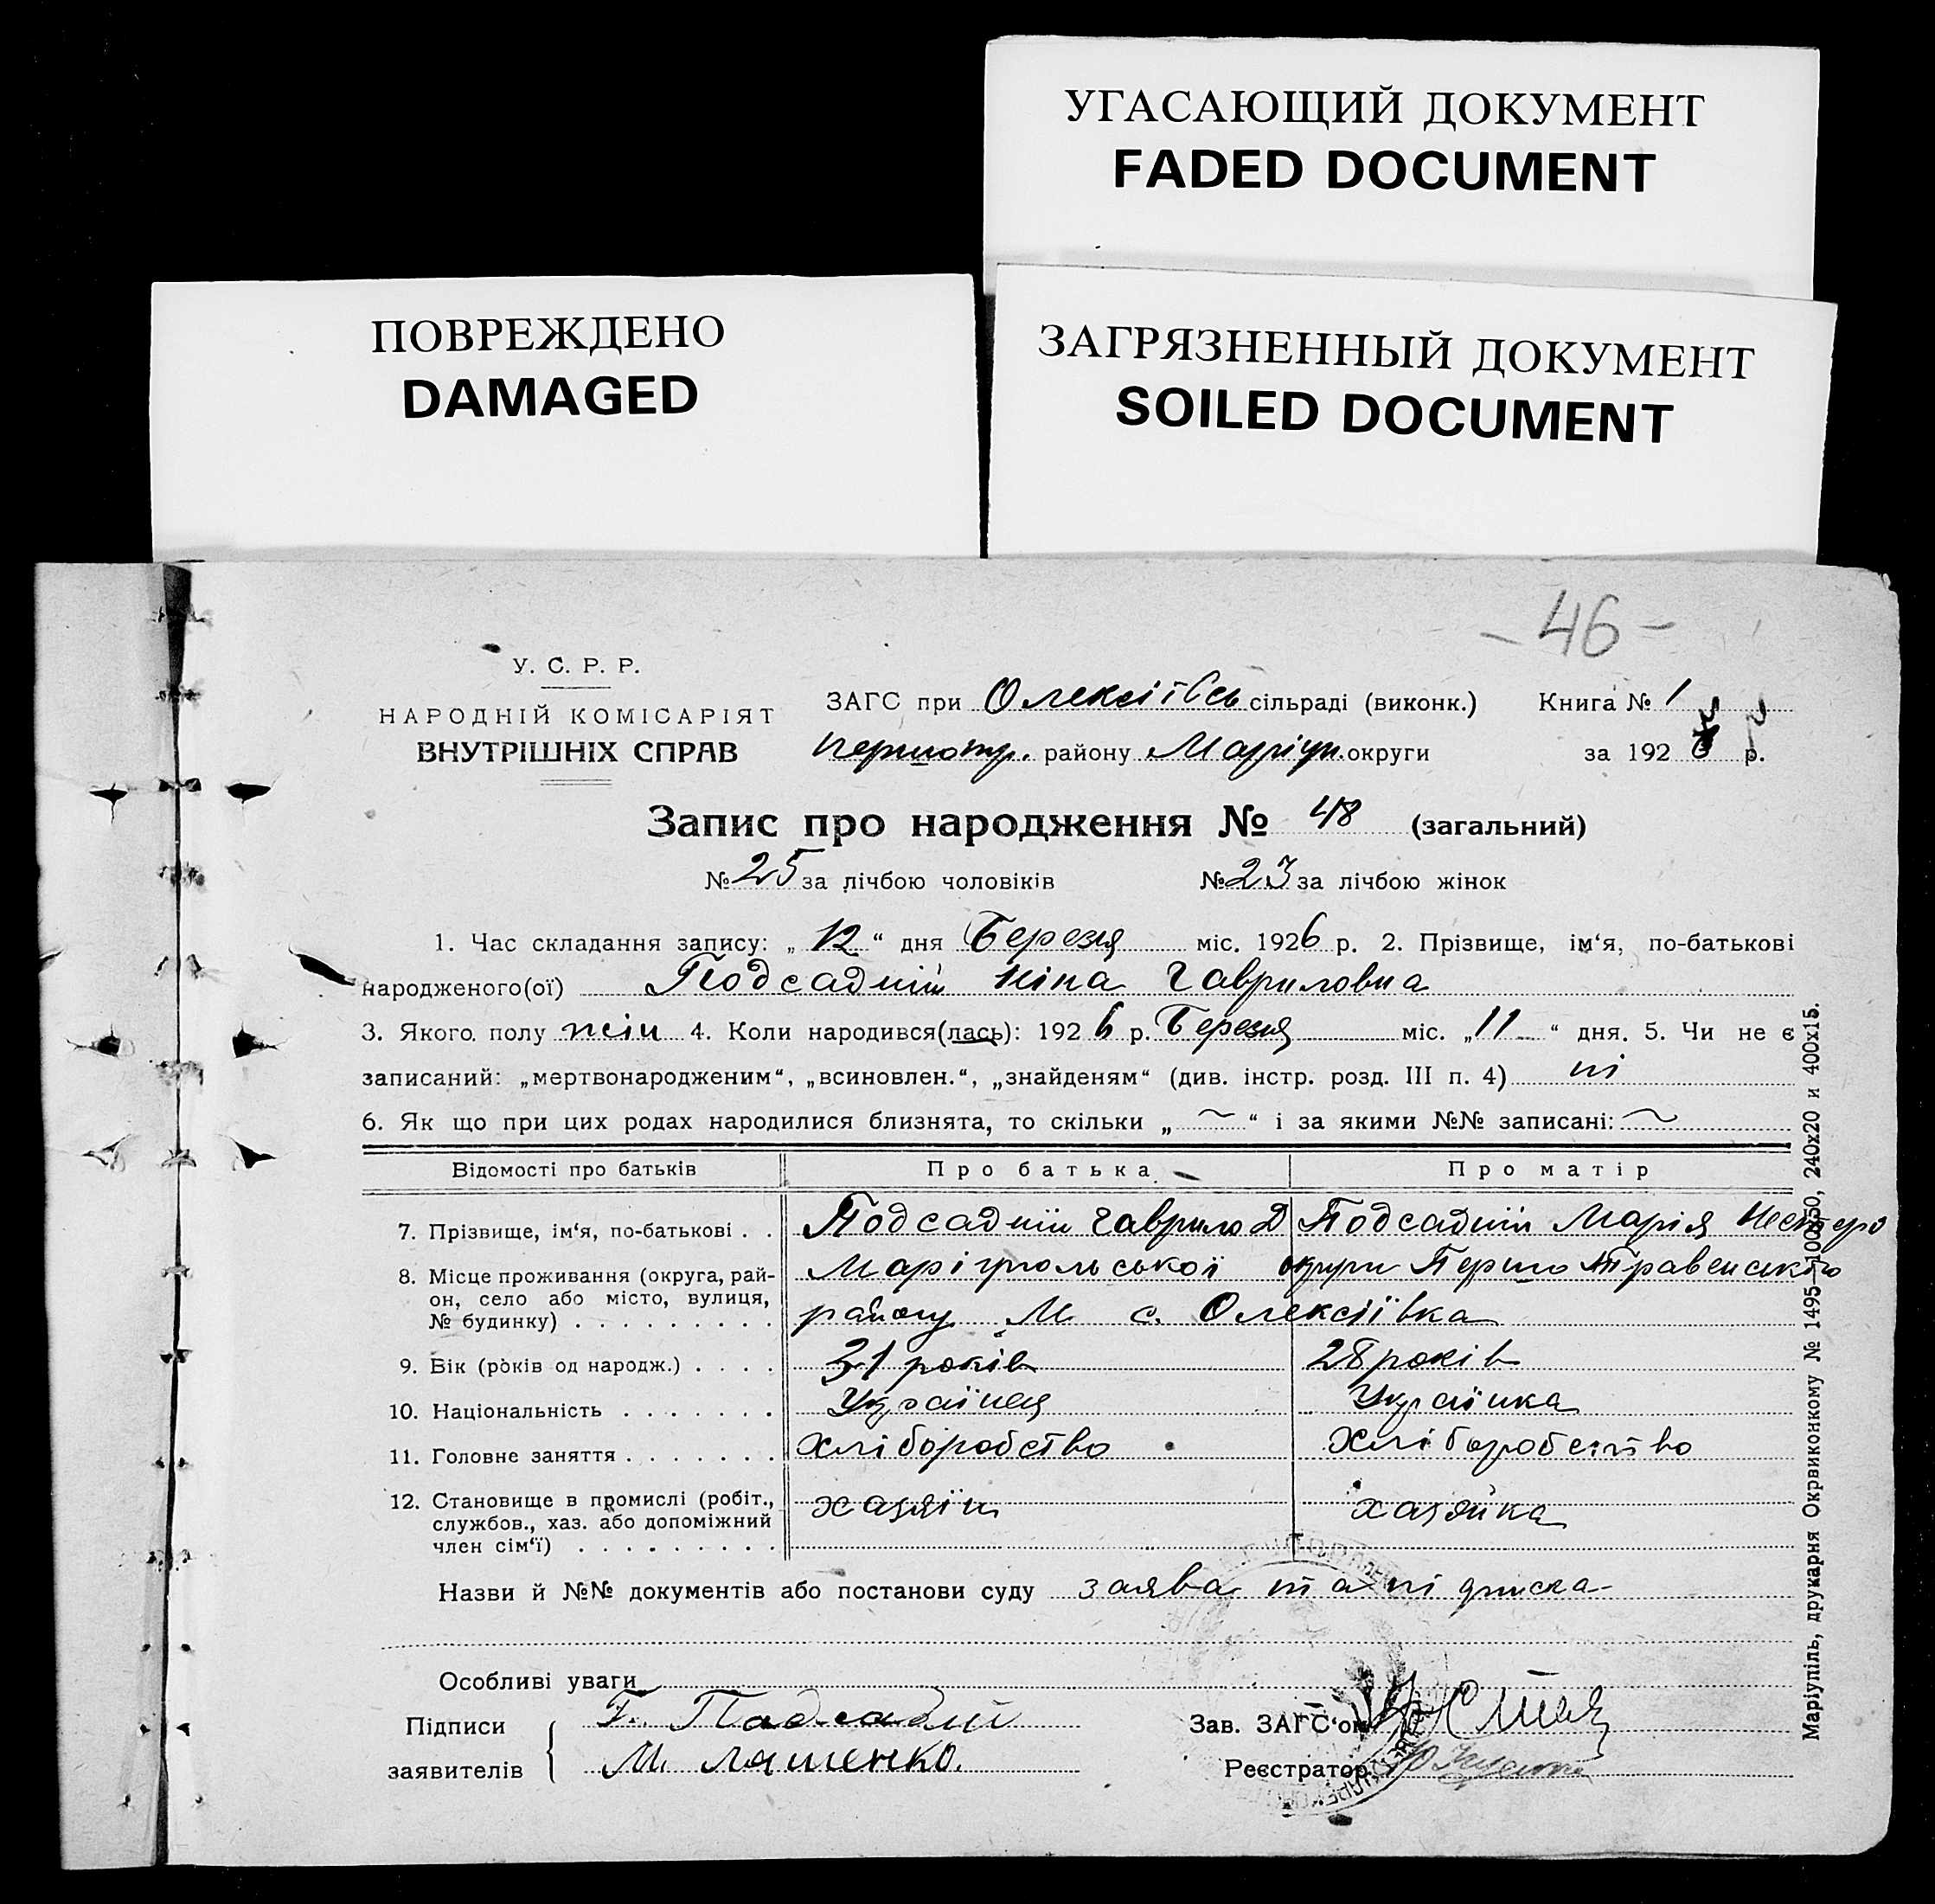 УГАСАЮЩИЙ ДОКУМЕНТ
FADED DOCUMENT
ПОВРЕЖДЕНО
DAMAGED
ЗАГРЯЗНЕННЫЙ ДОКУМЕНТ
SOILED DOCUMENT
- 46 -
У. С. Р. Р.
НАРОДНІЙ КОМІСАРІЯТ
ВНУТРІШНІХ СПРАВ
ЗАГС при Олексіївсь сільраді (виконк.) Книга № 1
першотр. району Маріуп. округи за 192 6 р.
Запис про народження № 48 (загальний)
№ 25 за лічбою чоловіків № 23 за лічбою жінок
1. Час складання запису: „ 12 “ дня Березня міс. 1926 р. 2. Прізвище, ім‘я, по-батькові
народженого(ої) Подсадній Ніна Гавриловна
3. Якого полу жін 4. Коли народився(лась): 192 6 р. Березня міс. „ 11 “ дня. 5. Чи не є
записаний: „мертвонародженим“, „всиновлен.“, „знайденям“ (див. інстр. розд. III п. 4) ні
6. Як що при цих родах народилися близнята, то скільки „ ~ “ і за якими №№ записані: ~
Відомості про батьків Про батька Про матір
7. Прізвище, ім‘я, по-батькові . . Подсадній Гаврило Д Подсадній Марія Нестеро
8. Місце проживання (округа, рай- Маріупольської округи Першо Травенського
он, село або місто, вулиця,
№ будинку) . . . . . . . . . району М с. Олексіївка
9. Вік (років од народж.) . . . . 31 років 28 років
10. Національність . . . . . . . Українец Українка
11. Головне заняття . . . . . . . хліборобство хліборобство
12. Становище в промислі (робіт., хазяїн хазяйка
службов., хаз. або допоміжний
член сім‘ї) . . . . . . . . .
Назви й №№ документів або постанови суду заява та підписка
Особливі уваги
Підписи Г. Падсадній
заявителів М. Ляшенко.
Зав. ЗАГС‘ом
Реєстратор
Маріупіль, друкарня Окрвиконкому № 1495—100x50, 240x20 и 400x15.